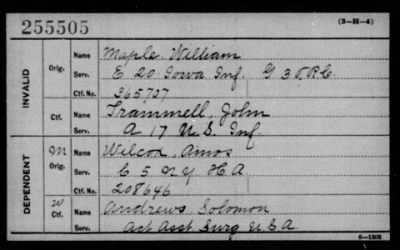 255505 (3-H-4)
INVALID
Orig. Name Maple, William
Serv. E 20 Iowa Inf. G 3 V.R.C.
Ctf. No. 365707
Ctf. Name Trammell, John
Serv. A 17 U.S. Inf
DEPENDENT
M Orig. Name Wilcox, Amos
Serv. C 5 N Y H A
Ctf. No. 208646
W Ctf. Name Andrews Solomon
Serv. Act Asst Surg U S A
6-1303